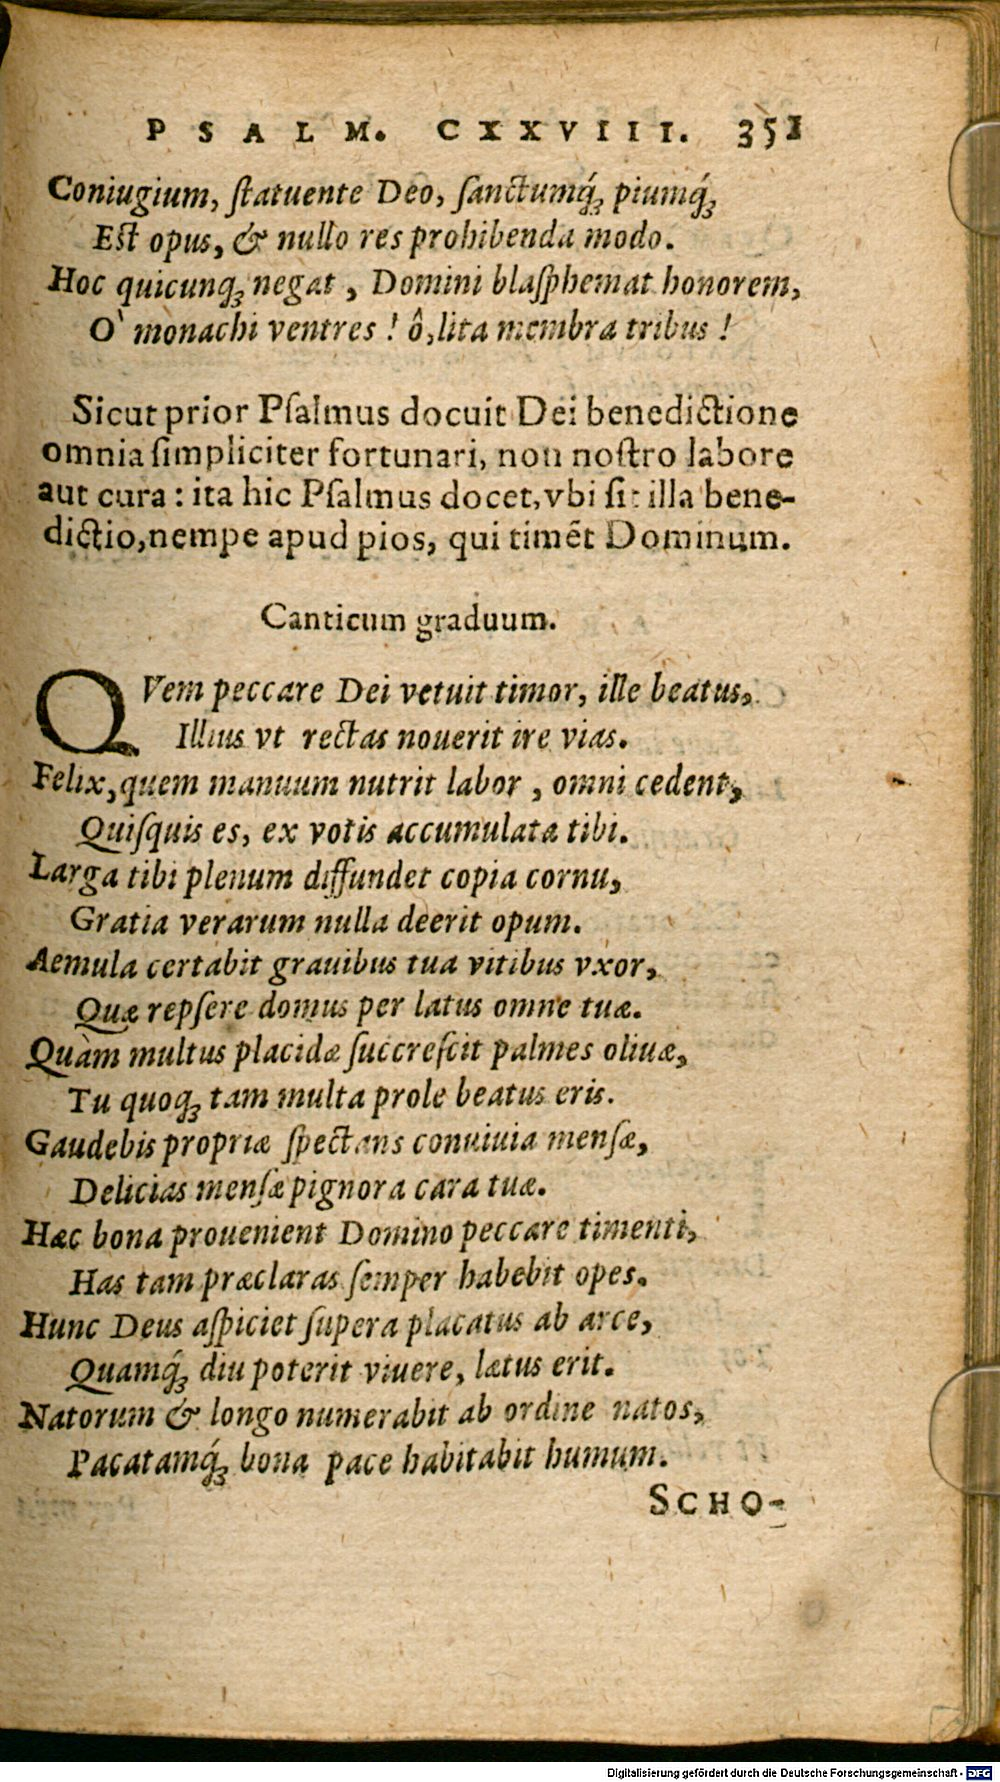 PSALM. CXXVIII. 351
Coniugium, ſtatuente Deo, ſanctumq́ꝫ piumq́ꝫ
Eſt opus, & nullo res prohibenda modo.
Hoc quicunqꝫ negat, Domini blaſphemat honorem,
O' monachi ventres! ô, lita membra tribus!
Sicut prior Pſalmus docuit Dei benedictione
omnia ſimpliciter fortunari, non noſtro labore
aut cura: ita hic Pſalmus docet, vbi ſit illa bene-
dictio, nempe apud pios, qui timẽt Dominum.
Canticum graduum.
QVem peccare Dei vetuit timor, ille beatus,
Illius vt rectas nouerit ire vias.
Felix, quem manuum nutrit labor, omni cedent,
Quiſquis es, ex votis accumulata tibi.
Larga tibi plenum diffundet copia cornu,
Gratia verarum nulla deerit opum.
Aemula certabit grauibus tua vitibus vxor,
Quæ repſere domus per latus omne tuæ.
Quàm multus placidæ ſuccreſcit palmes oliuæ,
Tu quoqꝫ tam multa prole beatus eris.
Gaudebis propriæ ſpectans conuiuia menſæ,
Delicias menſæ pignora cara tuæ.
Hæc bona prouenient Domino peccare timenti,
Has tam præclaras ſemper habebit opes.
Hunc Deus aſpiciet ſupera placatus ab arce,
Quamq́ꝫ diu poterit viuere, lætus erit.
Natorum & longo numerabit ab ordine natos,
Pacatamq́ꝫ bona pace habitabit humum.
SCHO-
Digitalisierung gefördert durch die Deutsche Forschungsgemeinschaft - DFG